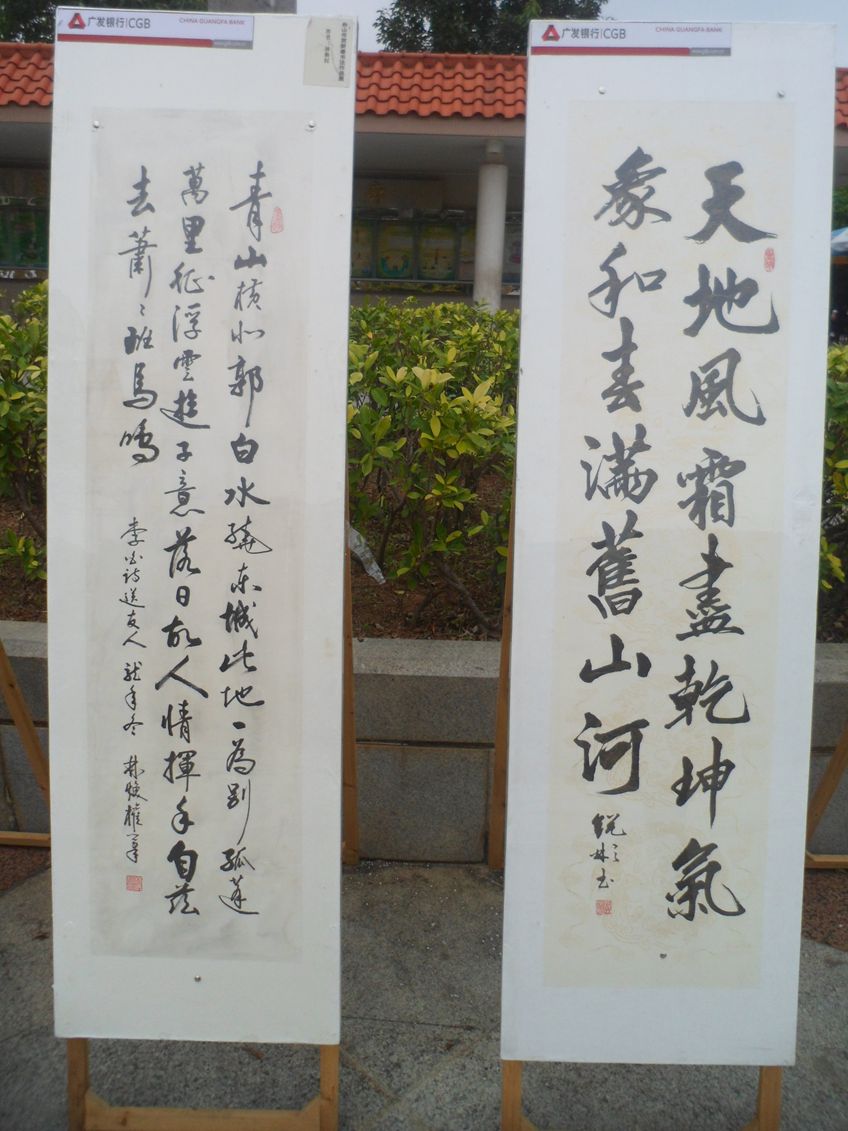 广发银行|CGB
CHINA GUANGFA BANK
青山横北郭白水绕东城此地一為别孤蓬
萬里征浮雲遊子意落日故人情揮手自兹
去萧〻班馬鳴
李白诗送友人 龙年冬 林焕權書
广发银行|CGB
CHINA GUANGFA BANK
天地風霜盡乾坤氣
象和春满舊山河